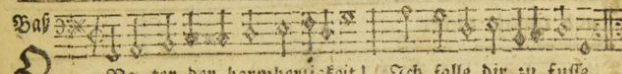 Baß
Va ter der barmhertzigkeit! Ich falle dir zu fusse